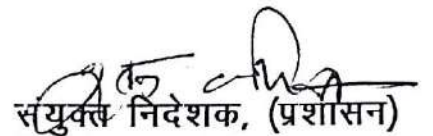 संयुक्त निदेशक, (प्रशासन)